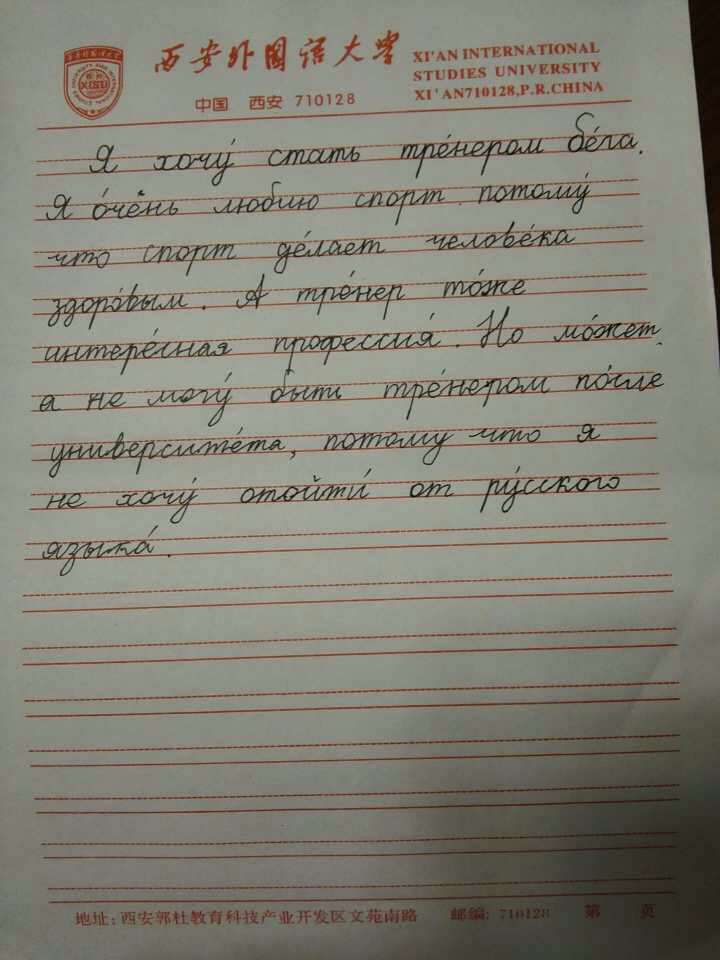 西安外国语大学
XI'AN INTERNATIONAL
STUDIES UNIVERSITY
XI'AN710128,P.R.CHINA
中国 西安 710128
Я хочу́ стать тре́нером бе́га.
Я о́чень люблю спорт потому́
что спорт де́лает челове́ка
здоро́вым. А тре́нер то́же
интере́сная профессия́. Но мо́жет
а не могу́ быть тре́нером по́сле
университе́та, потому что я
не хочу́ отойти́ от ру́сского
языка́.
地址: 西安郭杜教育科技产业开发区文苑南路 邮编: 710128 第 页